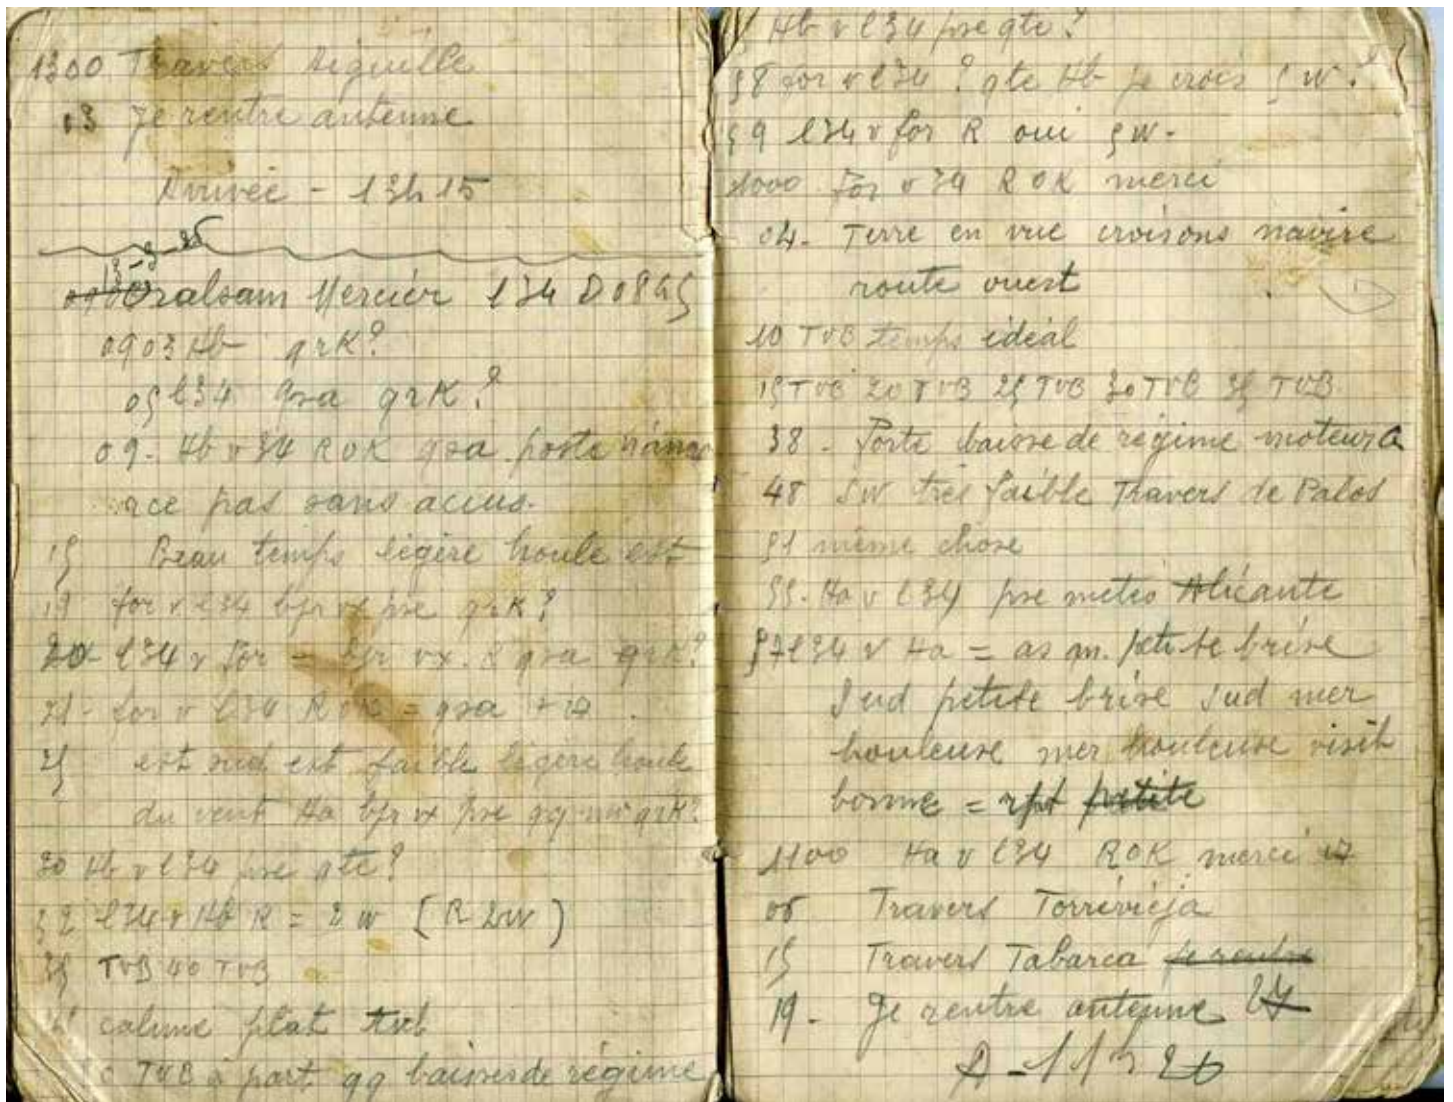 1300 Travers Aiguille
03 Je rentre antenne
Arrivée - 13h15
Mercier l34 D 0845
0903 Hb qrK?
05 l34 qsa qrK?
09. Hb v 34 R OK qsa poste
pas sans accus.
15 Beau temps légère houle est
19 for v l34 bjr vx pse qrK?
20 l34 v for = bjr vx. & qsa qrK?
21 - for v l34 R OK = qsa
25 est sud est faible légère houle
du vent Ha bjr vx pse qq qrK?
30 Hb v l34 pse qte?
32 l34 v Hb R = 2 w [R 2w]
35 TVB 40 TVB
calme plat tvb
TVB à part qq baisses de régime
Hb v l34 pse qte?
58 for v l34 ? qte Hb je crois 5 w?
59 l34 v for R oui 5 w.
1000 for v 34 R OK merci
04. Terre en vue croisons navire
route ouest
10 TVB temps idéal
15 TVB 20 TVB 25 TVB 30 TVB 35 TVB
38 - Forte baisse de régime moteur
48 SW très faible Travers de Palos
51 même chose
55. Ha v l34 pse météo Alicante
57 l34 v Ha = as mn. petite brise
Sud petite brise Sud mer
houleuse mer houleuse visib
bonne = rpt petite
1100 Ha v l34 R OK merci
06 Travers Torrévieja
15 Travers Tabarca je rentre
19 - Je rentre antenne 27
A - 11 h 26